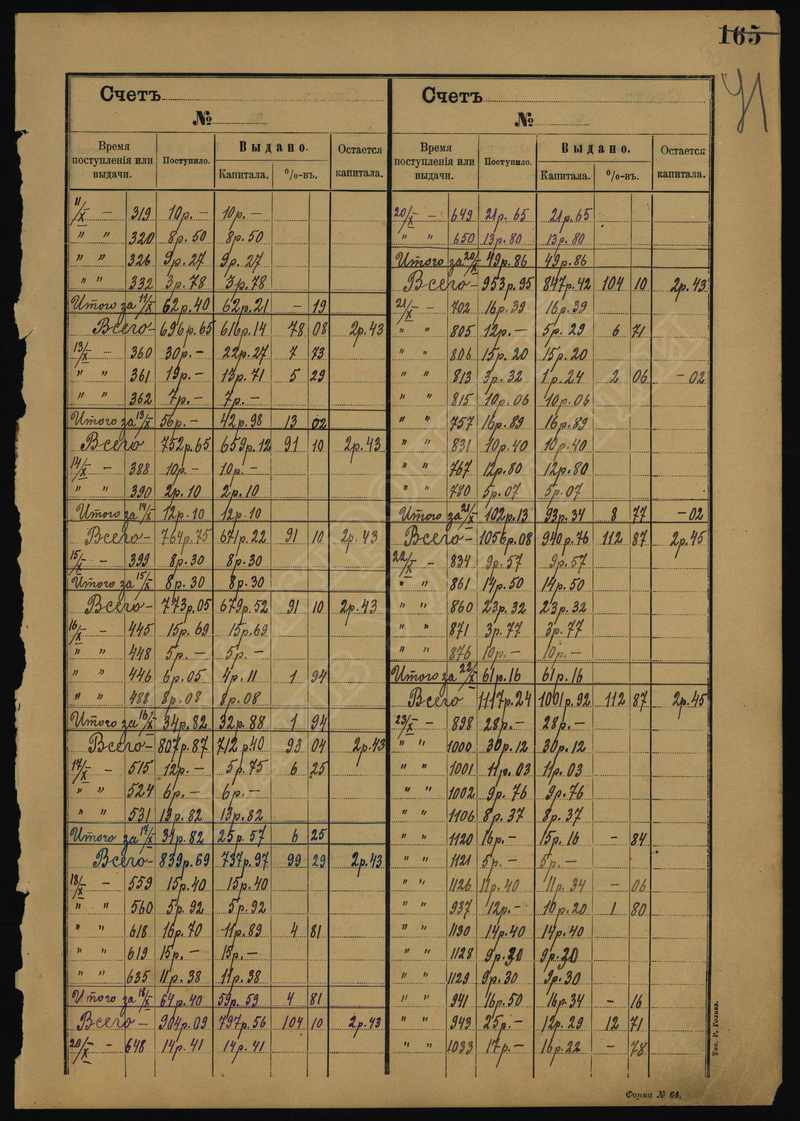 165
71
Счетъ
№
Время поступленія или выдачи. Поступило. Выдано. Капитала. %-въ. Остается капитала.
11/X — 319 10р.— 10р.—
" " 320 8р.50 8р.50
" " 326 9р.27 9р.27
" " 332 3р.78 3р.78
Итого за 11/X 62р.40 62р.21 — 19
Всего— 696р.65 616р.14 78 08 2р.43
13/X — 360 30р.— 22р.27 7 73
" " 361 19р.— 13р.71 5 29
" " 362 7р.— 7р.—
Итого за 13/X 56р.— 42р.98 13 02
Всего 752р.65 659р.12 91 10 2р.43
14/X — 388 10р.— 10р.—
" " 390 2р.10 2р.10
Итого за 14/X 12р.10 12р.10
Всего— 764р.75 671р.22 91 10 2р.43
15/X — 399 8р.30 8р.30
Итого за 15/X 8р.30 8р.30
Всего— 773р.05 679р.52 91 10 2р.43
16/X — 445 15р.69 15р.69
" " 448 5р.— 5р.—
" " 446 6р.05 4р.11 1 94
" " 488 8р.08 8р.08
Итого за 16/X 34р.82 32р.88 1 94
Всего— 807р.87 712р40 93 04 2р.43
17/X — 515 12р.— 5р.75 6 25
" " 524 6р.— 6р.—
" " 531 13р.82 13р.82
Итого за 17/X 31р.82 25р.57 6 25
Всего— 839р.69 737р.97 99 29 2р.43
18/X — 559 15р.40 15р.40
" " 560 5р.92 5р.92
" " 618 16р.70 11р.89 4 81
" " 619 15р.— 15р.—
" " 635 11р.38 11р.38
Итого за 18/X 64р.40 59р.59 4 81
Всего— 904р.09 797р.56 104 10 2р.43
20/X — 648 14р.41 14р.41
Счетъ
№
Время поступленія или выдачи. Поступило. Выдано. Капитала. %-въ. Остается капитала.
20/X — 649 21р.65 21р.65
" " 650 13р.80 13р.80
Итого за 20/X 49р.86 49р.86
Всего— 953р.95 847р.42 104 10 2р.43
21/X — 702 16р.39 16р.39
" " 805 12р.— 5р.29 6 71
" " 806 15р.20 15р.20
" " 813 3р.32 1р.24 2 06 —02
" " 815 10р.06 10р.06
" " 757 16р.89 16р.89
" " 831 10р.40 10р.40
" " 767 12р.80 12р.80
" " 780 5р.07 5р.07
Итого за 21/X 102р.13 93р.34 8 77 —02
Всего— 1056р.08 940р.76 112 87 2р.45
22/X — 834 9р.57 9р.57
" " 861 14р.50 14р.50
" " 860 23р.32 23р.32
" " 871 3р.77 3р.77
" " 876 10р.— 10р.—
Итого за 22/X 61р.16 61р.16
Всего 1117р.24 1001р.92 112 87 2р.45
23/X — 898 28р.— 28р.—
" " 1000 30р.12 30р.12
" " 1001 11р.03 11р.03
" " 1002 9р.76 9р.76
" " 1106 8р.37 8р.37
" " 1120 16р.— 15р.16 — 84
" " 1121 5р.— 5р.—
" " 1126 11р.40 11р.34 — 06
" " 937 12р.— 10р.20 1 80
" " 1130 14р.40 14р.40
" " 1128 9р.20 9р.20
" " 1129 9р.30 9р.30
" " 941 16р.50 16р.34 — 16
" " 943 25р.— 12р.29 12 71
" " 1033 17р.— 16р.22 — 78
Форма № 64.